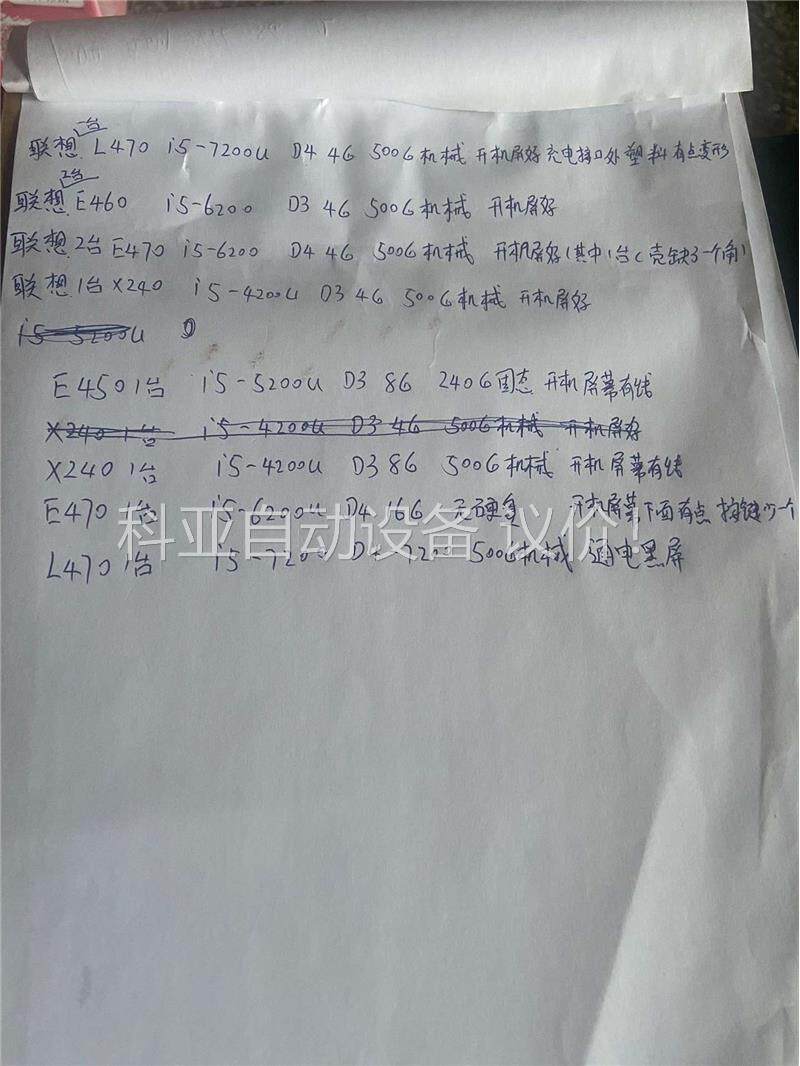 一台
联想 L470 i5-7200U D4 4G 500G机械 开机屏好 充电接口处塑料有点变形
2台
联想 E460 i5-6200 D3 4G 500G机械 开机屏好
联想 2台 E470 i5-6200 D4 4G 500G机械 开机屏好(其中1台C壳缺了一个角)
联想 1台 X240 i5-4200U D3 4G 500G机械 开机屏好
i5-5200U D
E450 1台 i5-5200U D3 8G 240G固态 开机屏幕有线
X240 1台 i5-4200U D3 4G 500G机械 开机屏好
X240 1台 i5-4200U D3 8G 500G机械 开机屏幕有线
E470 1台 i5-6200U D4 16G 无硬盘 开机屏幕下面有点 按键少1个
L470 1台 i5-7200 D4 500G机械 通电黑屏
科亚自动设备 议价!